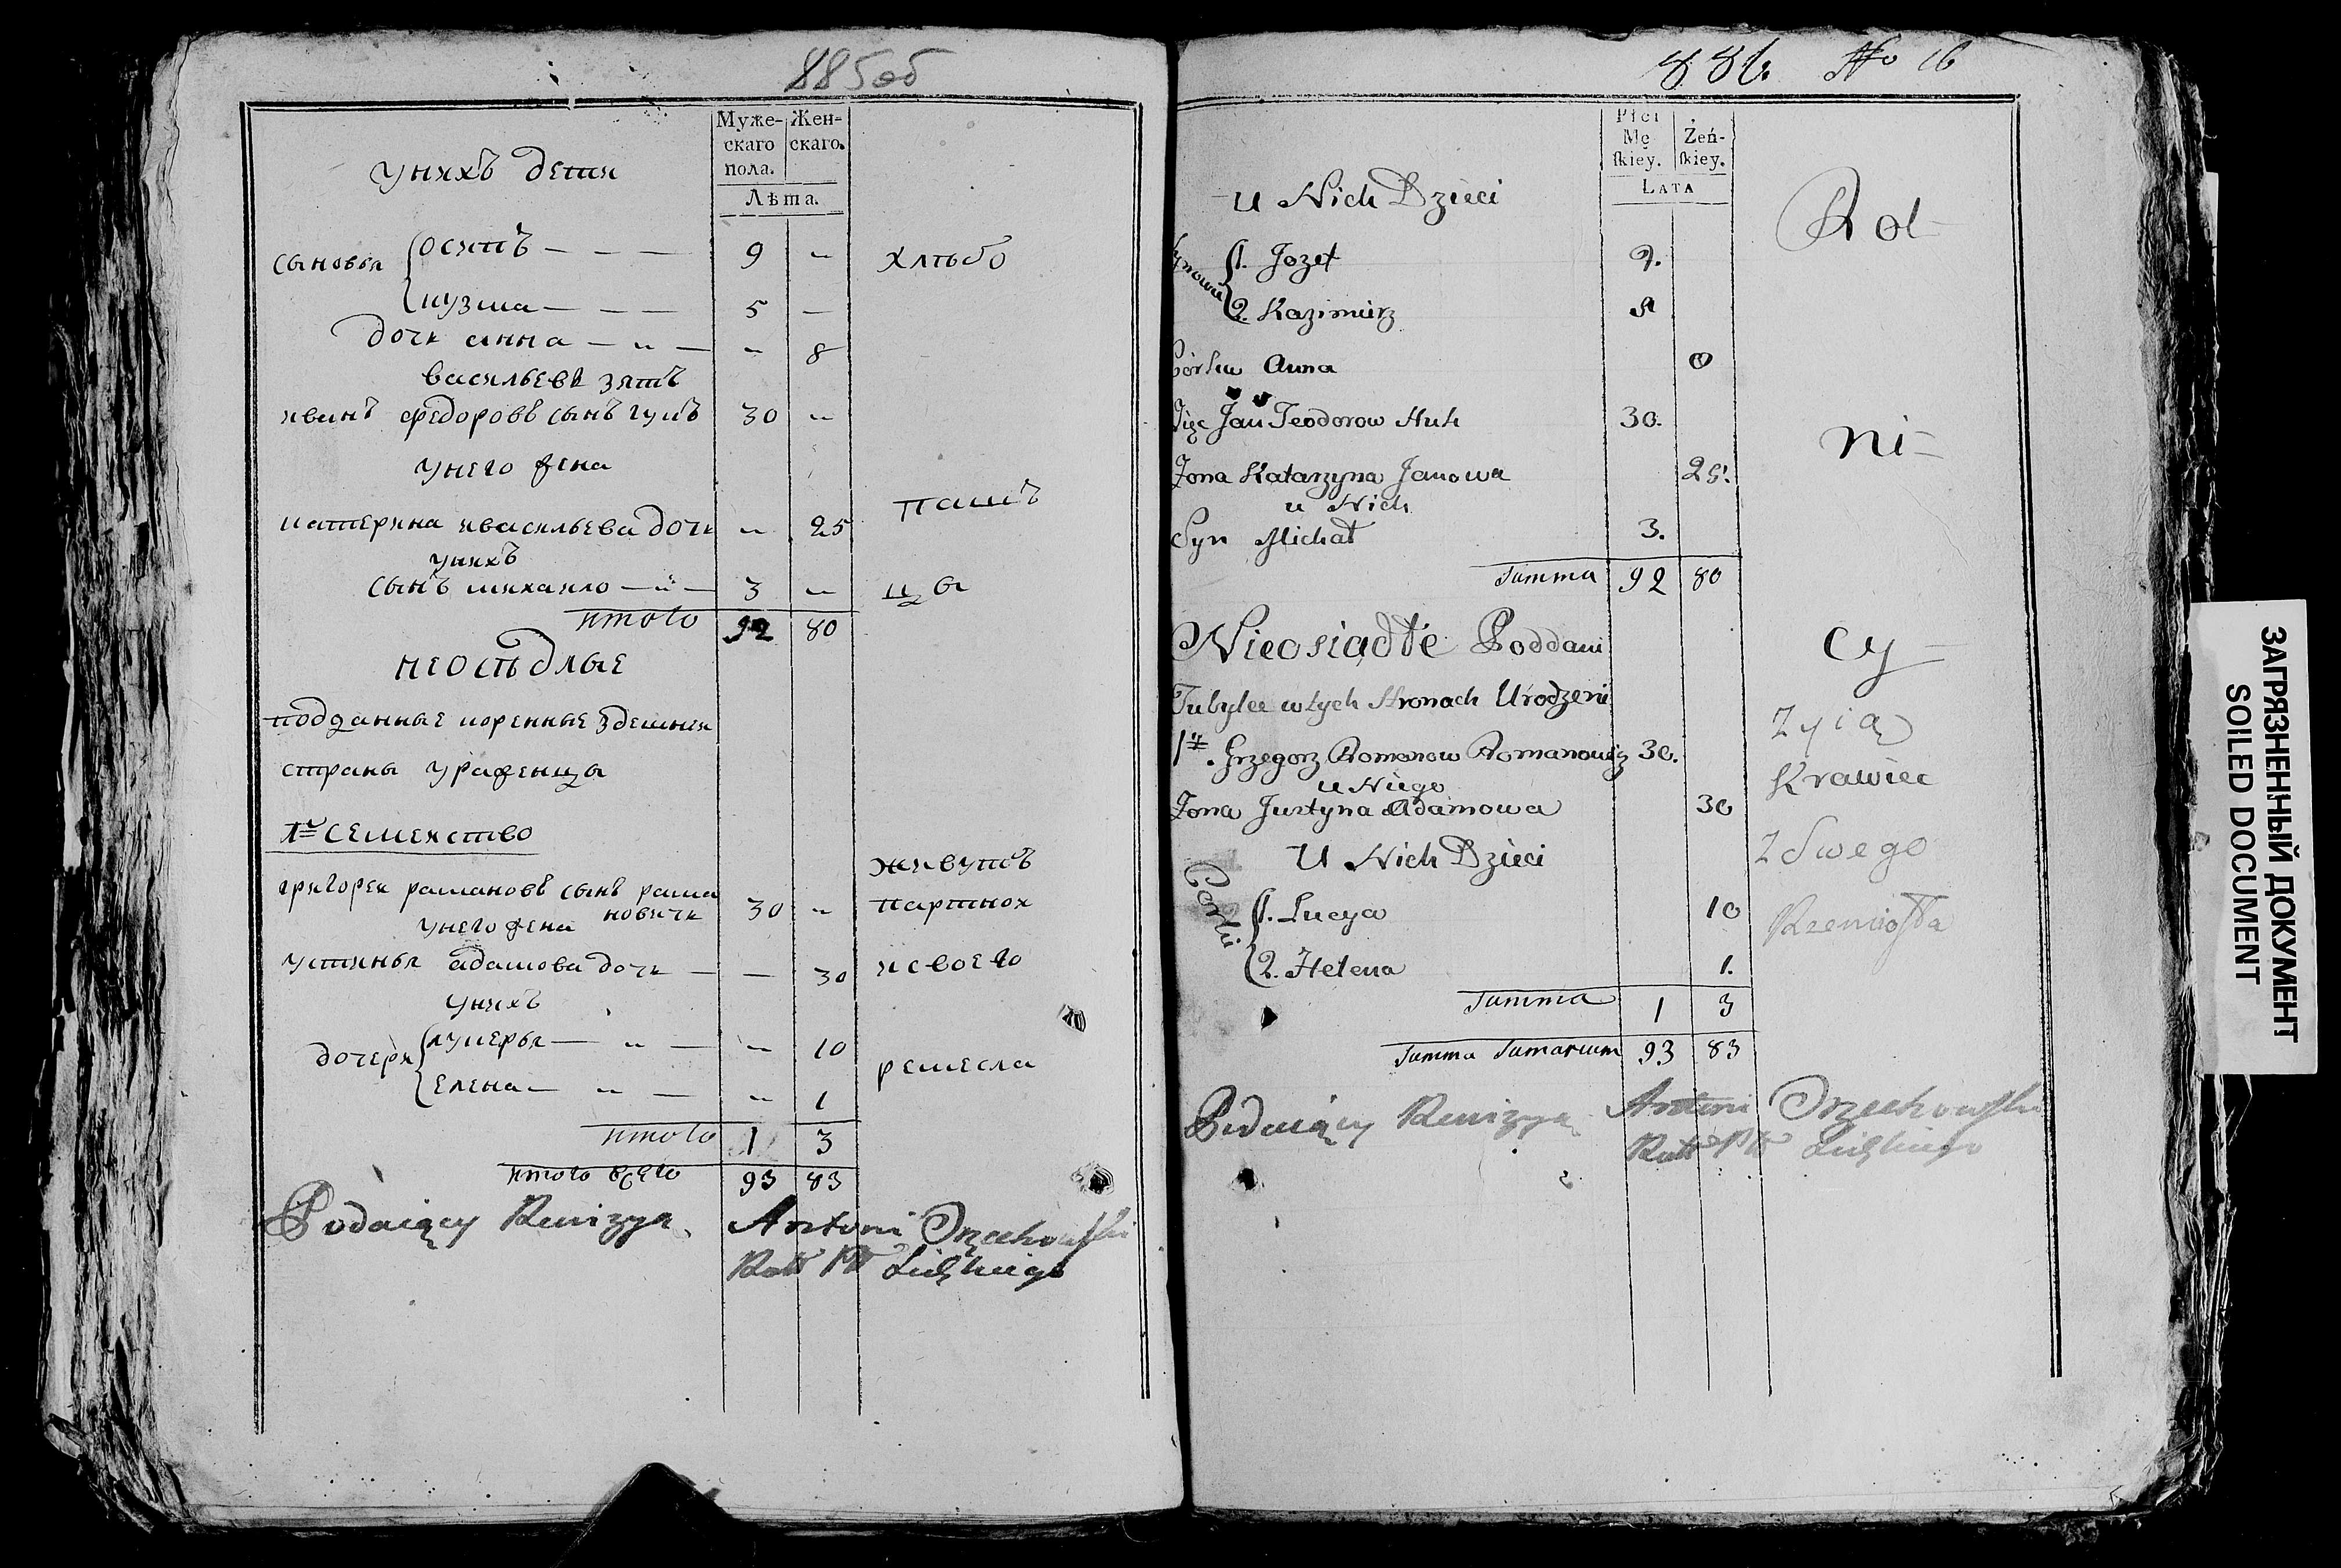 885об
Муже- Жен-
скаго скаго.
пола.
Лѣта.
унихъ дети
сыновья осипъ — — — 9 — хлѣбо
кузма — — — 5 —
дочь анна — — — 8
васильевъ зять
иванъ федоровъ сынъ гукъ 30 —
унего жена
катерина ивасильева дочь — 25 паш
унихъ
сынъ михаило — — 3 — цы
итого 92 80
неосѣдлые
подданные коренные здешнея
страны ураженцы
1е семейство
григорей рамановъ сынъ рама 30 — живутъ
новичь партнои
унего жена
устинья адамова дочь — — 30 исвоего
унихъ
дочери лукерья — — — 10
елена — — — 1 ремесла
итого 1 3
итого всего 93 83
Podaiący Rewizyą. Antoni Orzechowski
Rott Ptt Lidzkiego
886. No 16
Płci
Mę Żeń-
skiey. skiey.
LATA
u Nich Dzieci Rol-
Synowie 1. Jozef 9.
2. Kazimierz 5
Córka Anna 8
Zięć Jan Teodorow Huk 30. ni-
Zona Katarzyna Janowa 25.
u Nich
Syn Michał 3.
Summa 92 80
Nieosiadłe Poddani cy
Tubylce wtych Stronach Urodzeni Zyią
1e. Grzegorz Romanow Romanowicz 30. Krawiec
u Niego
Zona Justyna Adamowa 30
U Nich Dzieci z Swego
Corki 1. Lucya 10 Rzemiosła
2. Helena 1.
Summa 1 3
Summa Sumarium 93 83
Podaiący Rewizyą Antoni Orzechowski
Rott Ptt Lidzkiego
ЗАГРЯЗНЕННЫЙ ДОКУМЕНТ
SOILED DOCUMENT